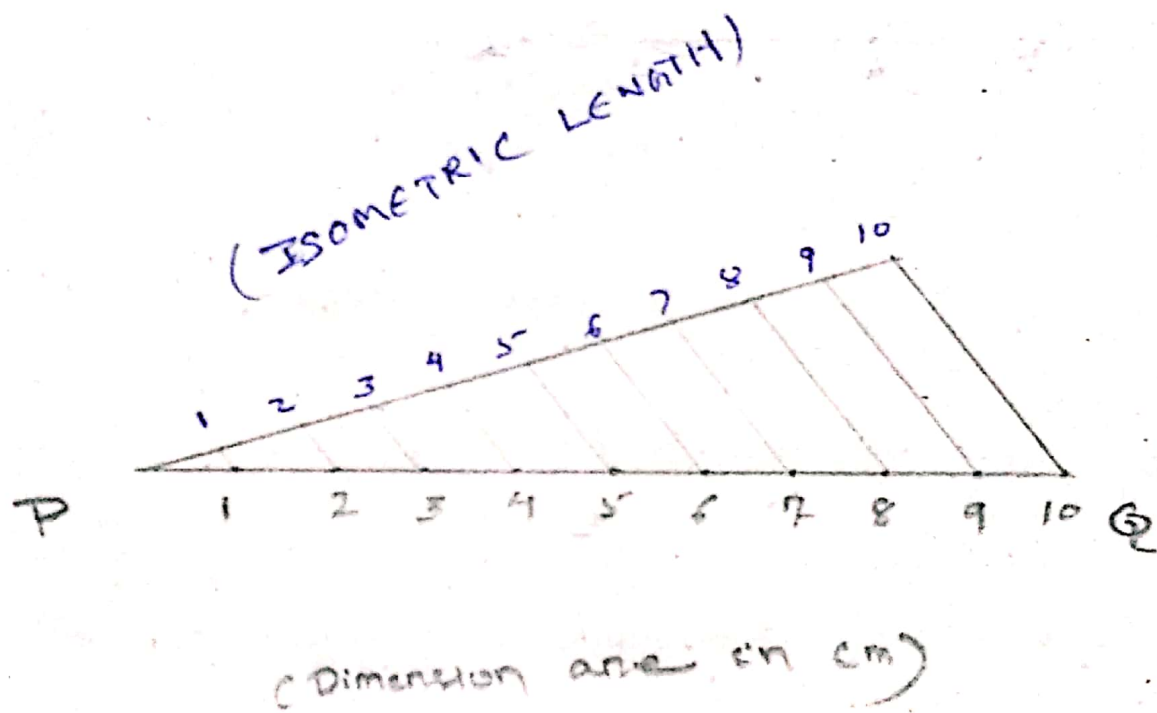 (ISOMETRIC LENGTH)
1 2 3 4 5 6 7 8 9 10
P 1 2 3 4 5 6 7 8 9 10 Q
(Dimension are in cm)